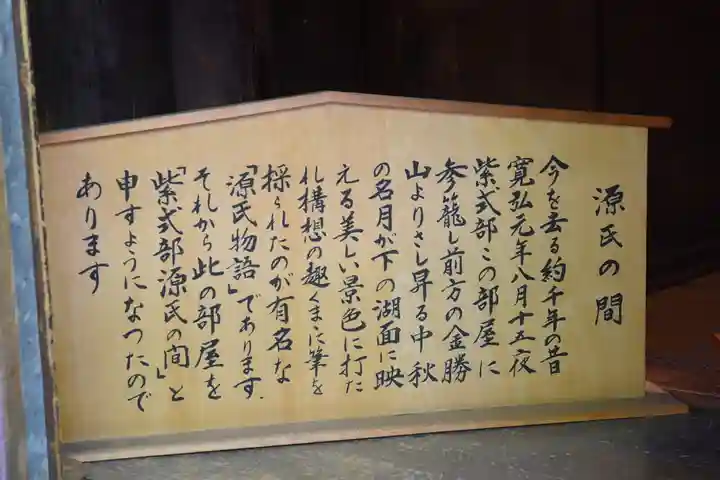 源氏の間
今を去る約千年の昔
寛弘元年八月十五夜
紫式部この部屋に
参籠し前方の金勝
山よりさし昇る中秋
の名月が下の湖面に映
える美しい景色に打た
れ構想の趣くまに筆を
採られたのが有名な
「源氏物語」であります.
それから此の部屋を
「紫式部源氏の間」と
申すようになつたので
あります